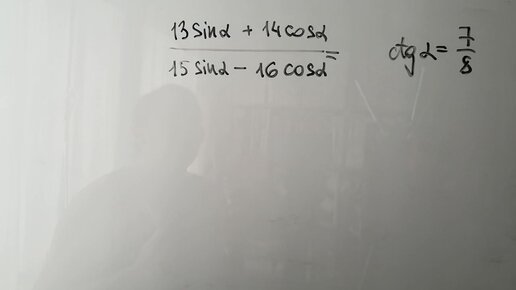 13sinα + 14cosα
15sinα - 16cosα =
ctgα = 7/8